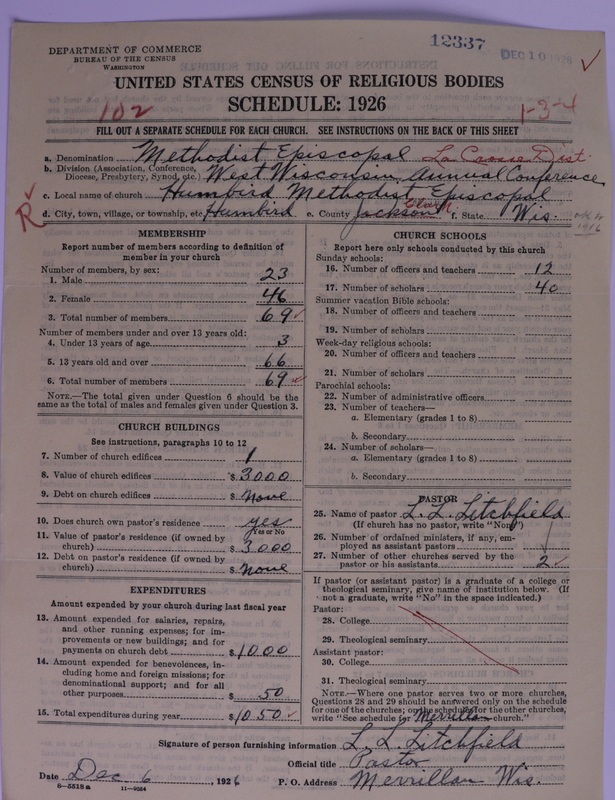 DEPARTMENT OF COMMERCE
BUREAU OF THE CENSUS
WASHINGTON
12337
DEC 10 1926
UNITED STATES CENSUS OF RELIGIOUS BODIES
SCHEDULE: 1926
102
1-3-4
FILL OUT A SEPARATE SCHEDULE FOR EACH CHURCH. SEE INSTRUCTIONS ON THE BACK OF THIS SHEET
a. Denomination Methodist Episcopal La Crosse Dist.
b. Division (Association, Conference, Diocese, Presbytery, Synod, etc.) West Wisconsin Annual Conference
c. Local name of church Humbird Methodist Episcopal
R
d. City, town, village, or township, etc. Humbird e. County Jackson Clark f. State Wis.
MEMBERSHIP
Report number of members according to definition of
member in your church
Number of members, by sex:
1. Male 23
2. Female 46
3. Total number of members 69
Number of members under and over 13 years old:
4. Under 13 years of age 3
5. 13 years old and over 66
6. Total number of members 69
NOTE.—The total given under Question 6 should be
same as the total of males and females given under Question 3.
CHURCH BUILDINGS
See instructions, paragraphs 10 to 12
7. Number of church edifices 1
8. Value of church edifices $ 3000
9. Debt on church edifices $ None
10. Does church own pastor's residence yes
Yes or No
11. Value of pastor's residence (if owned by
church) $ 3000
12. Debt on pastor's residence (if owned by
church) $ None
EXPENDITURES
Amount expended by your church during last fiscal year
13. Amount expended for salaries, repairs,
and other running expenses; for im-
provements or new buildings; and for
payments on church debt $ 1000
14. Amount expended for benevolences, in-
cluding home and foreign missions; for
denominational support; and for all
other purposes $ 50
15. Total expenditures during year $ 1050
CHURCH SCHOOLS
Report here only schools conducted by this church
Sunday schools:
16. Number of officers and teachers 12
17. Number of scholars 40
Summer vacation Bible schools:
18. Number of officers and teachers
19. Number of scholars
Week-day religious schools:
20. Number of officers and teachers
21. Number of scholars
Parochial schools:
22. Number of administrative officers
23. Number of teachers—
a. Elementary (grades 1 to 8)
b. Secondary
24. Number of scholars—
a. Elementary (grades 1 to 8)
b. Secondary
PASTOR
25. Name of pastor L. L. Litchfield
(If church has no pastor, write "None")
26. Number of ordained ministers, if any, em-
ployed as assistant pastors
27. Number of other churches served by the
pastor or his assistants 2
If pastor (or assistant pastor) is a graduate of a college or
theological seminary, give name of institution below. (If
not a graduate, write "No" in the space indicated.)
Pastor:
28. College
29. Theological seminary
Assistant pastor:
30. College
31. Theological seminary
NOTE.—Where one pastor serves two or more churches,
Questions 28 and 29 should be answered only on the schedule
for one of the churches; on the schedule for the other churches,
write "See schedule for Merrillan church."
Signature of person furnishing information L. L. Litchfield
Official title Pastor
Date Dec 6, 1926
P. O. Address Merrillan Wis.
8-5518a 11-9264